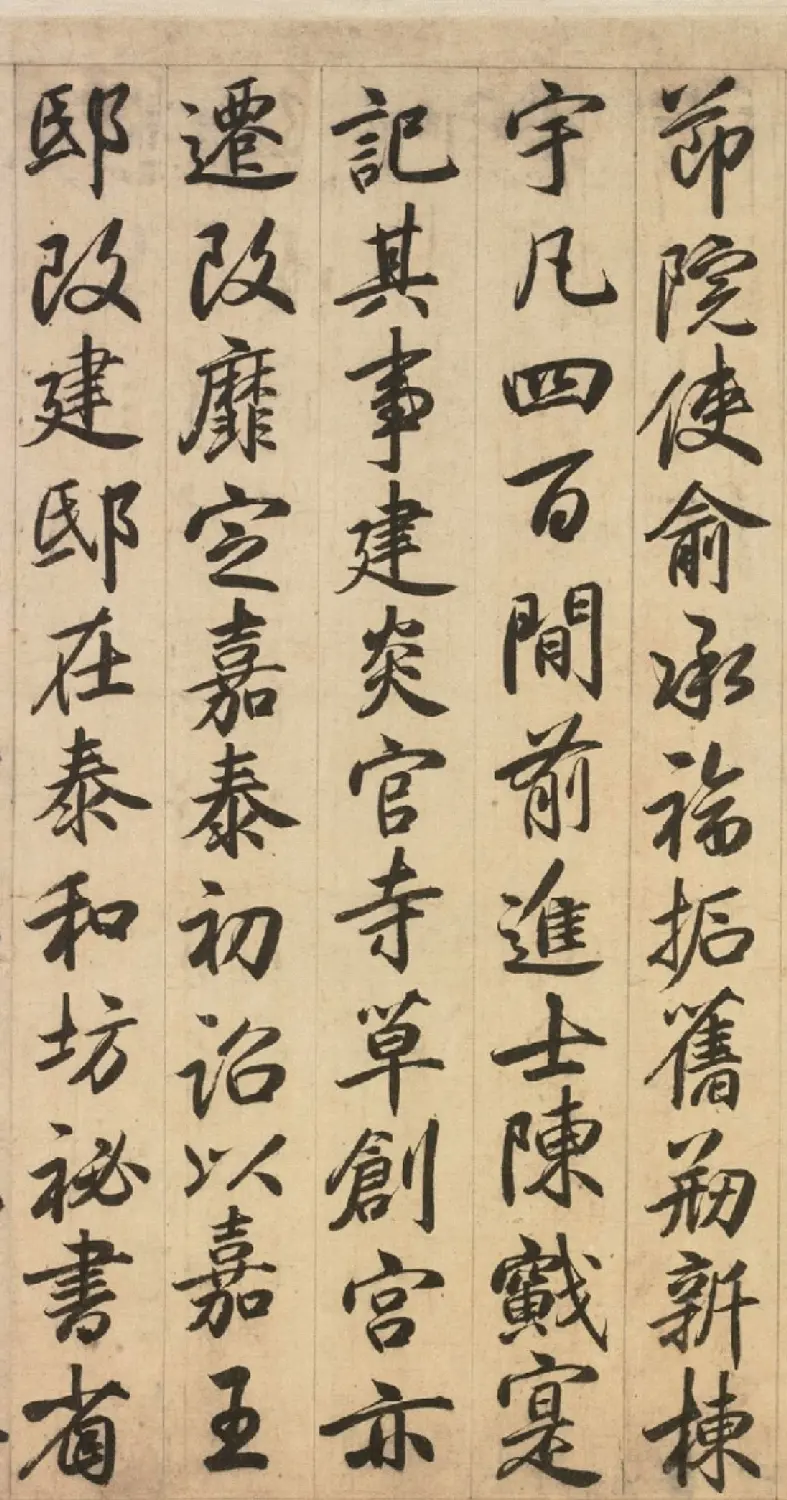 節院使俞承福拓舊刱新棟
宇凡四百間前進士陳戭寔
記其事建炎官寺草創宮亦
遷改靡定嘉泰初詔以嘉王
邸改建邸在泰和坊祕書省